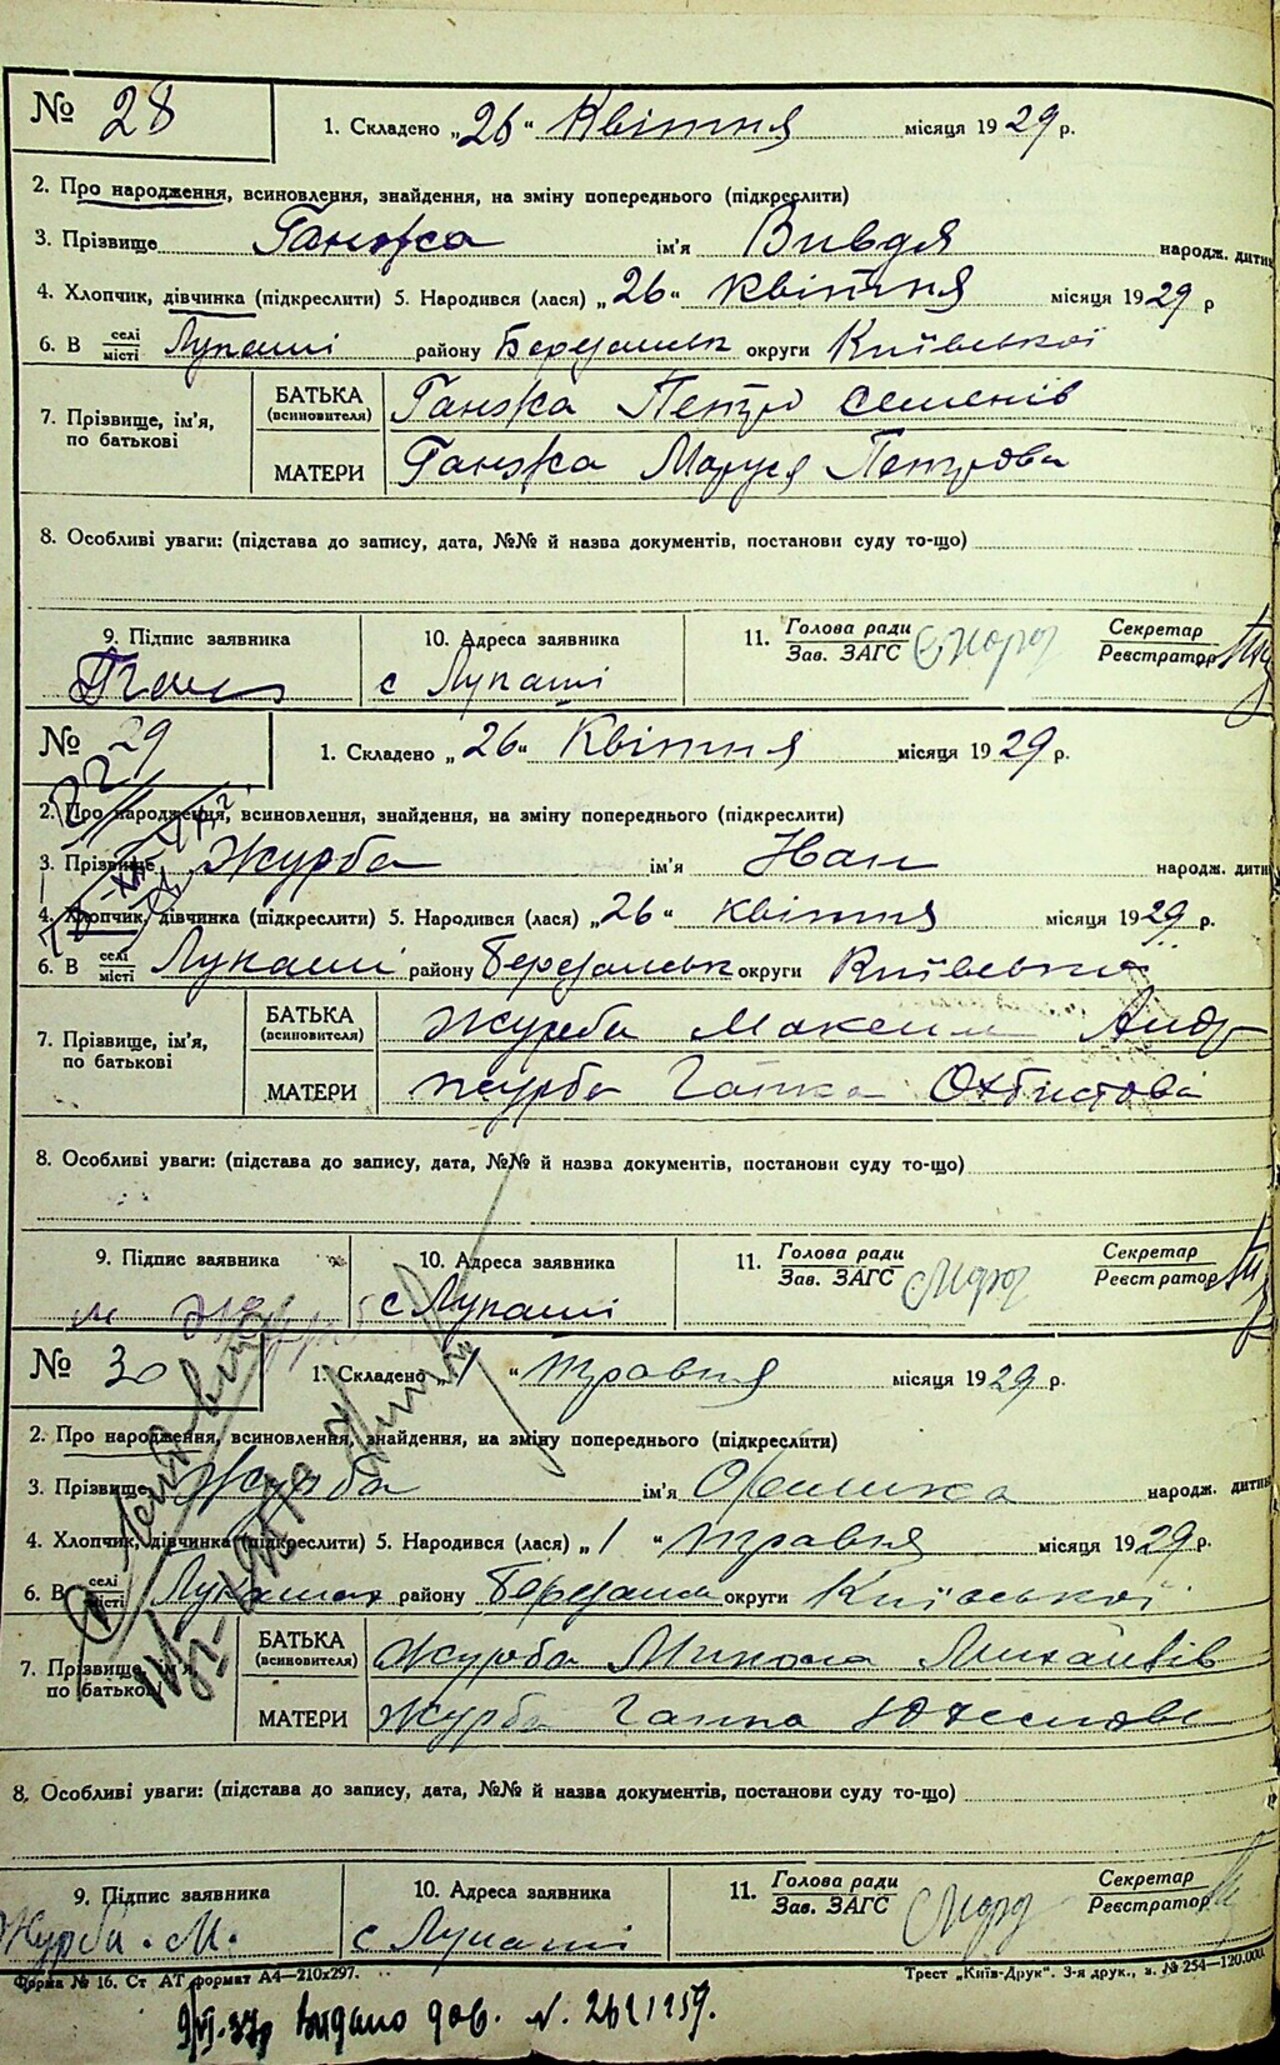 № 28
1. Складено „26“ Квітня місяця 1929 р.
2. Про народження, всиновлення, знайдення, на зміну попереднього (підкреслити)
3. Прізвище Ганжа ім'я Вивдя народж. дитин
4. Хлопчик, дівчинка (підкреслити) 5. Народився (лася) „26“ квітня місяця 1929 р
6. В селі місті Лукаші району Березанськ округи Київської
7. Прізвище, ім'я, по батькові
БАТЬКА (всиновителя) Ганжа Петро Семенів
МАТЕРИ Ганжа Маруся Петрова
8. Особливі уваги: (підстава до запису, дата, №№ й назва документів, постанови суду то-що)
9. Підпис заявника
10. Адреса заявника
с Лукаші
11. Голова ради Зав. ЗАГС
Секретар Реєстратор
№ 29
1. Складено „26“ Квітня місяця 1929 р.
2. Про народження, всиновлення, знайдення, на зміну попереднього (підкреслити)
3. Прізвище Журба ім'я Иван народж. дити
4. Хлопчик, дівчинка (підкреслити) 5. Народився (лася) „26“ квітня місяця 1929 р.
6. В селі місті Лукаші району Березанськ округи Київської
7. Прізвище, ім'я, по батькові
БАТЬКА (всиновителя) Журба Максим Андр
МАТЕРИ Журба Гапка
8. Особливі уваги: (підстава до запису, дата, №№ й назва документів, постанови суду то-що)
9. Підпис заявника
10. Адреса заявника
с Лукаші
11. Голова ради Зав. ЗАГС
Секретар Реєстратор
№ 30
1. Складено „1“ травня місяця 1929 р.
2. Про народження, всиновлення, знайдення, на зміну попереднього (підкреслити)
3. Прізвище Журба ім'я народж. дитин
4. Хлопчик, дівчинка (підкреслити) 5. Народився (лася) „1“ травня місяця 1929 р.
6. В селі місті Лукашах району Березань округи Київської
7. Прізвище, ім'я, по батькові
БАТЬКА (всиновителя) Журба Микола Михайлів
МАТЕРИ Журба Ганна
8. Особливі уваги: (підстава до запису, дата, №№ й назва документів, постанови суду то-що)
9. Підпис заявника
Журба. М.
10. Адреса заявника
с Лукаші
11. Голова ради Зав. ЗАГС
Секретар Реєстратор
Форма № 16. Ст АТ формат А4—210х297.
Трест „Київ-Друк“. 3-я друк., з. № 254—120.000.
Видано дов. N.